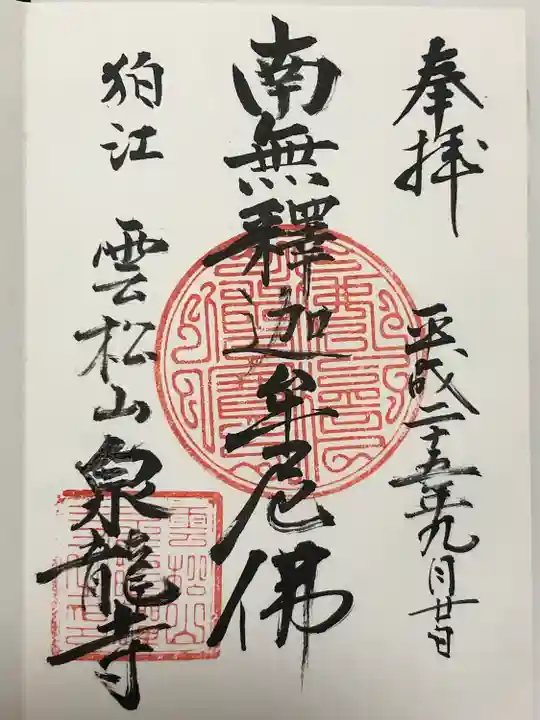 奉拝
平成二十五年九月廿日
南無釋迦牟尼佛
狛江 雲松山泉龍寺